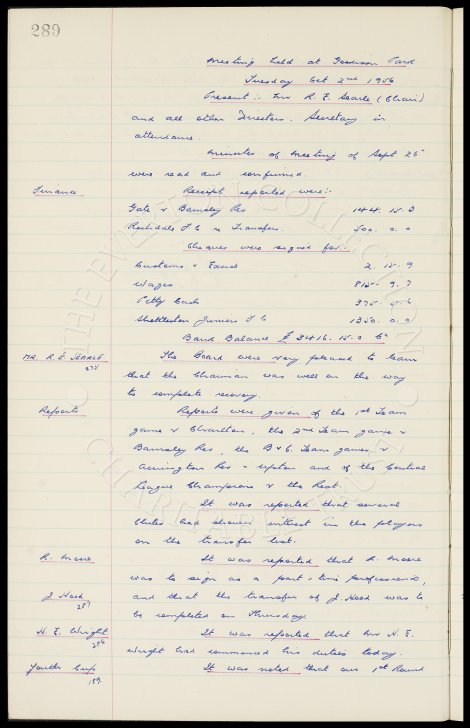 289
Meeting held at Goodison Park
Tuesday Oct 2nd 1956
Present :- Mr R. E. Searle (Chair)
and all other Directors. Secretary in
attendance.
Minutes of Meeting of Sept 25th
were read and confirmed.
Finance Receipts reported were:-
Gate v Barnsley Res 144. 18. 3
Rochdale F C re Transfers 500. 0. 0
Cheques were signed for:-
Customs & Excise 2. 15. 9
Wages 815. 9. 7
Petty Cash 375. 5. 6
Shettleston Juniors F C 1350. 0. 0
Bank Balance £ 3416. 15. 0
MR. R. E. SEARLE. The Board were very pleased to learn
that the Chairman was well on the way
to complete recovery.
Reports Reports were given of the 1st Team
game v Charlton, the 2nd Team game v
Barnsley Res, the B & C. Team games v
Accrington Res & Upton and of the Central
League Champions v the Rest.
It was reported that several
Clubs had shown interest in the players
on the transfer list.
R. Moore It was reported that R. Moore
was to sign as a part-time professional,
J. Hood and that the transfer of J. Hood was to
287
be completed on Thursday.
H. E. Wright. It was reported that Mr H. E.
286
Wright had commenced his duties today.
Youth Cup It was noted that our 1st Round
THE EVERTON COLLECTION
CHARITABLE TRUST